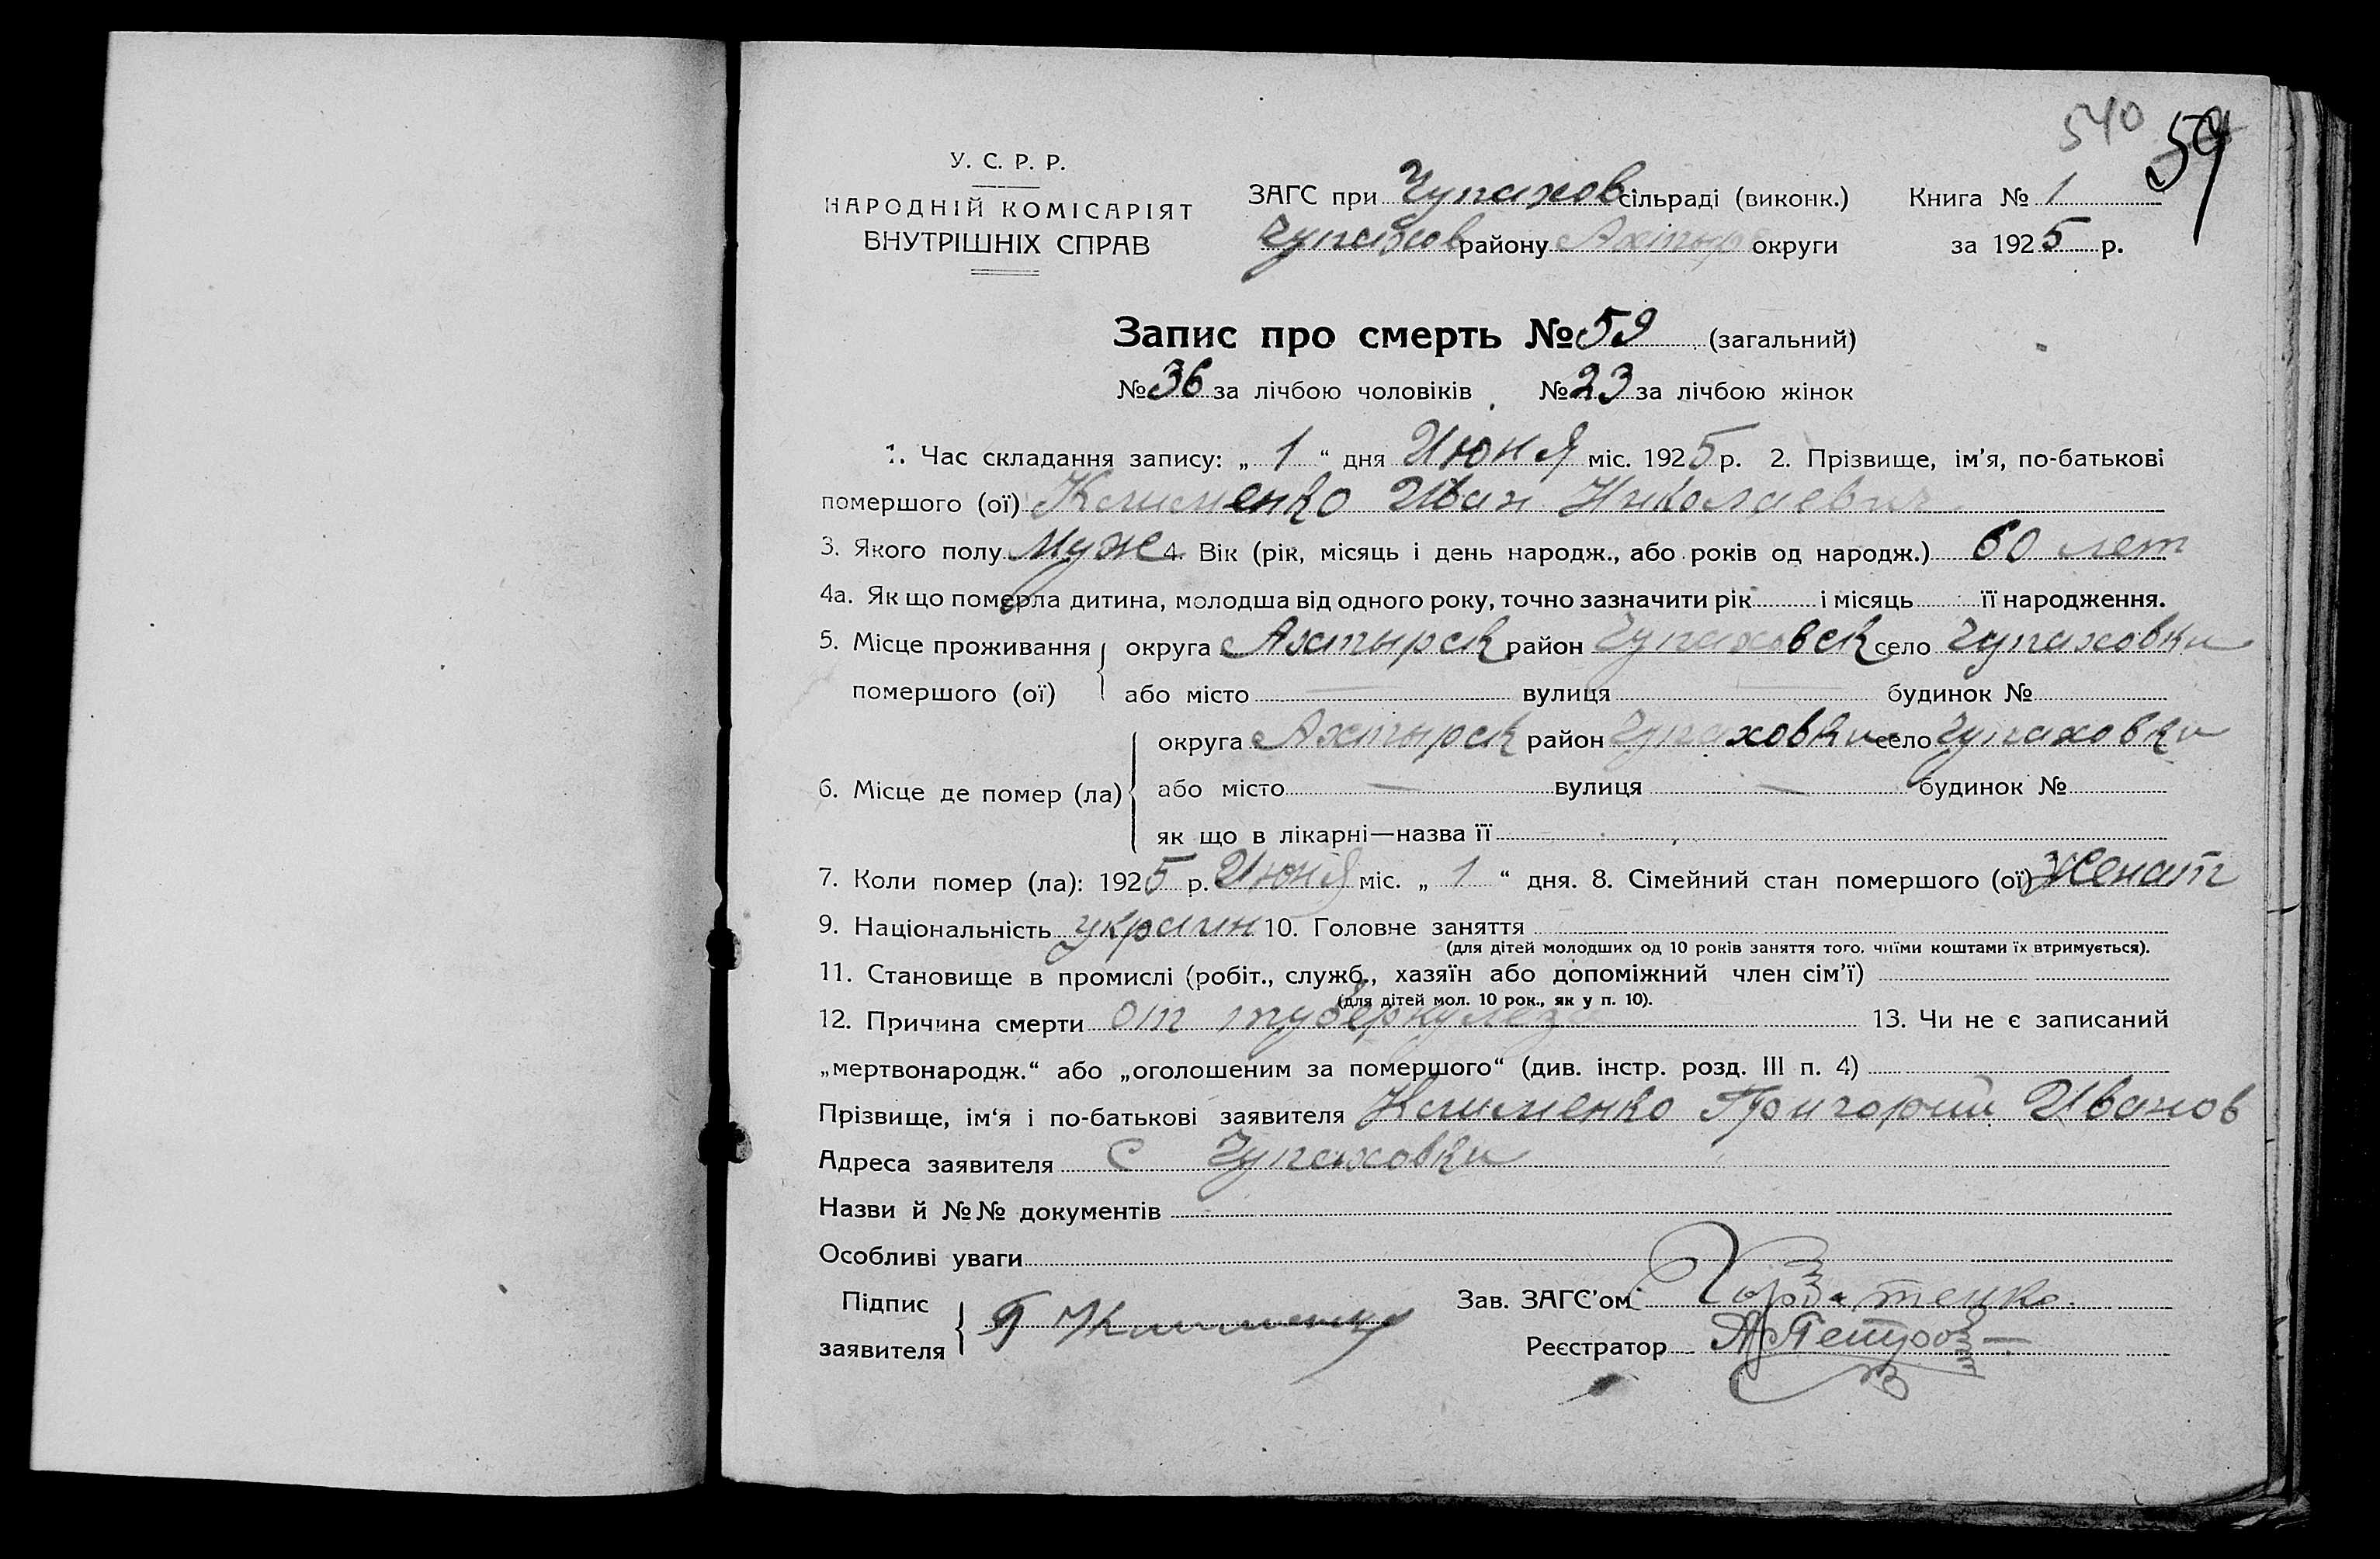 540 59
У. С. Р. Р.
НАРОДНІЙ КОМІСАРІЯТ
ВНУТРІШНІХ СПРАВ
ЗАГС при Чупахов сільраді (виконк.) Книга № 1
Чупахов району Ахтыр округи за 1925 р.
Запис про смерть № 59 (загальний)
№ 36 за лічбою чоловіків № 23 за лічбою жінок
1. Час складання запису: „ 1 “ дня Июня міс. 1925 р. 2. Прізвище, ім’я, по-батькові
помершого (ої) Клименко Иван Николаевич
3. Якого полу Муж 4. Вік (рік, місяць і день народж., або років од народж.) 60 лет
4а. Як що померла дитина, молодша від одного року, точно зазначити рік і місяць її народження.
5. Місце проживання округа Ахтырск район Чупаховск село Чупаховки
помершого (ої) або місто — вулиця — будинок №
округа Ахтырск район Чупаховки село Чупаховки
6. Місце де помер (ла) або місто — вулиця — будинок №
як що в лікарні—назва її
7. Коли помер (ла): 1925 р. Июня міс. „ 1 “ дня. 8. Сімейний стан помершого (ої) женат
9. Національність украин 10. Головне заняття
(для дітей молодших од 10 років заняття того, чиїми коштами їх втримується).
11. Становище в промислі (робіт., служб., хазяїн або допоміжний член сім’ї)
(для дітей мол. 10 рок., як у п. 10).
12. Причина смерти от туберкулеза 13. Чи не є записаний
„мертвонародж.“ або „оголошеним за помершого“ (див. інстр. розд. III п. 4)
Прізвище, ім‘я і по-батькові заявителя Клименко Григорий Иванов
Адреса заявителя с Чупаховки
Назви й №№ документів
Особливі уваги
Підпис заявителя Г Клименко
Зав. ЗАГС’ом
Реєстратор А Петров